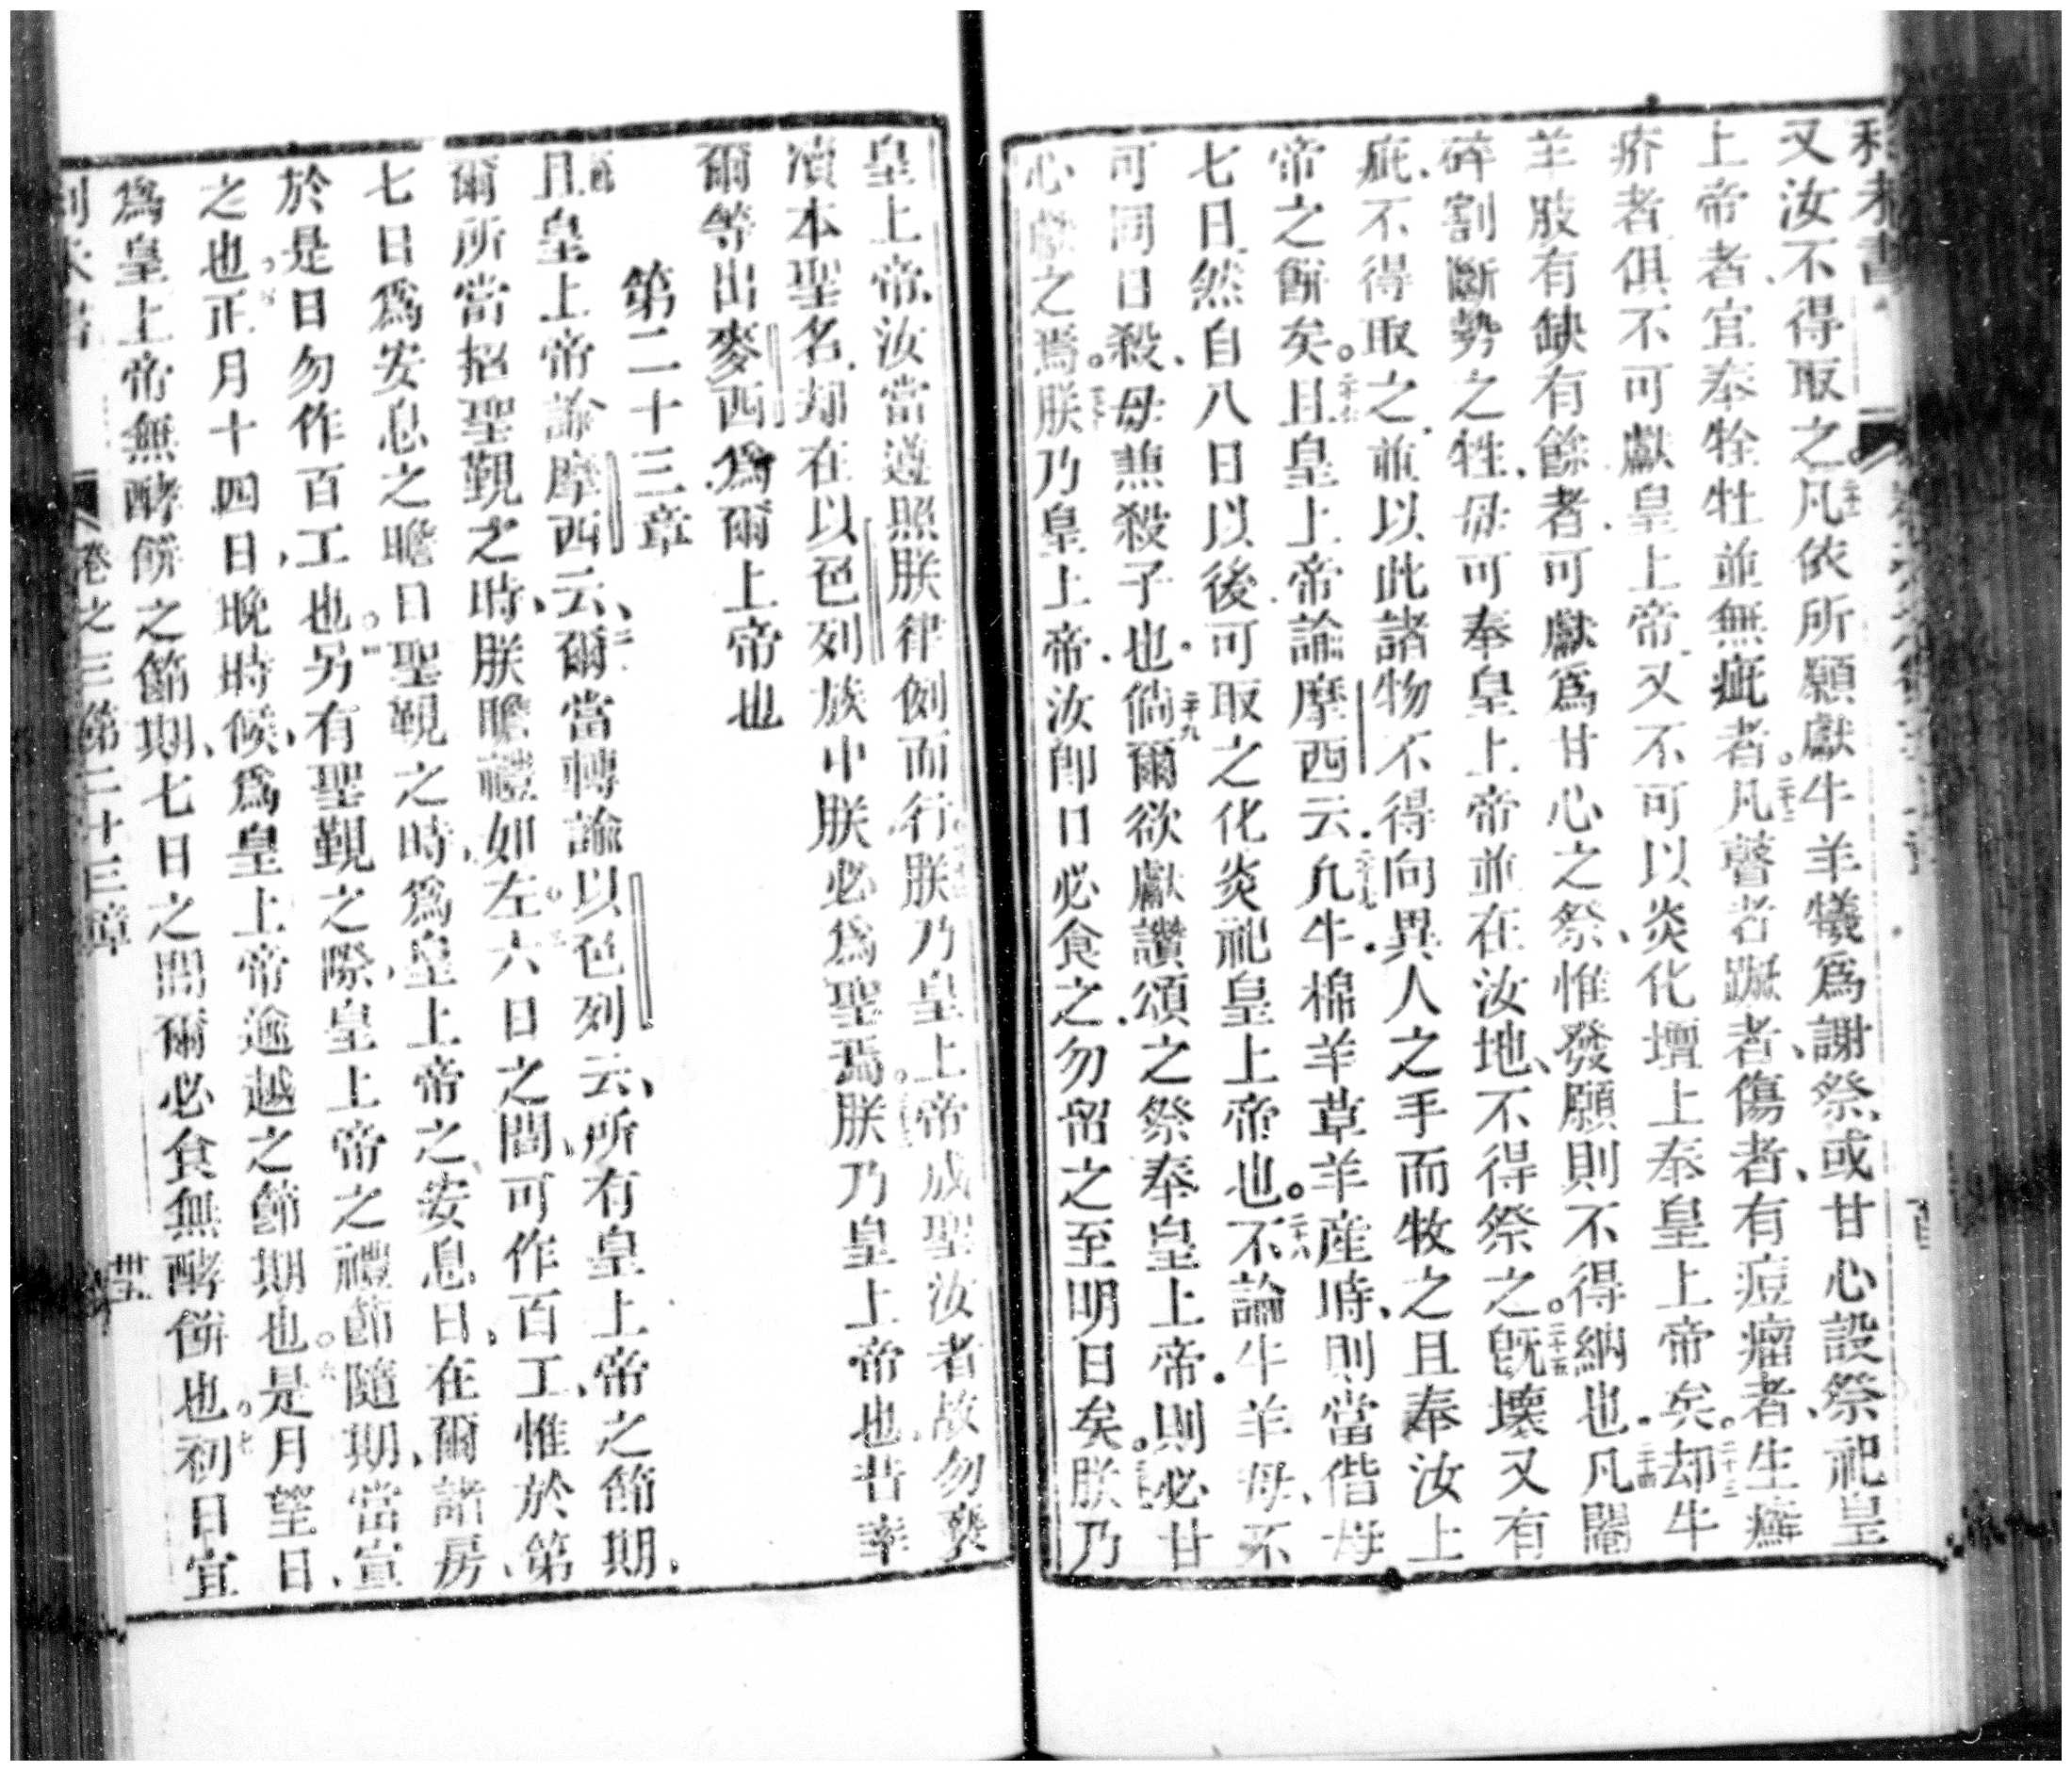 又汝不得取之二十一凡依所願獻牛羊犧爲謝祭、或甘心設祭祀皇
上帝者、宜奉牷牡並無疵者。二十二凡瞽者蹶者、傷者、有痘瘤者、生癬
疥者、俱不可獻皇上帝、又不可以炎化壇上奉皇上帝矣。二十三却牛
羊肢有缺有餘者、可獻爲甘心之祭、惟發願則不得納也。二十四凡閹
碎割斷勢之牲、毋可奉皇上帝並在汝地、不得祭之。二十五旣壞又有
疵、不得取之、並以此諸物不得向異人之手而牧之且奉汝上
帝之餅矣。二十六且皇上帝諭摩西云、二十七凡牛、棉羊草羊産時、則當偕母
七日、然自八日以後、可取之化炎祀皇上帝也。二十八不論牛羊母、不
可同日殺、毋兼殺子也。二十九倘爾欲獻讚頌之祭奉皇上帝、則必甘
心獻之焉。三十朕乃皇上帝、汝卽日必食之、勿留之至明日矣。三十一朕乃
皇上帝、汝當遵照朕律例而行、朕乃皇上帝成聖汝者、故勿褻
瀆本聖名、却在以色列族中朕必爲聖焉。朕乃皇上帝也、昔率
爾等出麥西、爲爾上帝也
第二十三章
且皇上帝諭摩西云、二爾當轉諭以色列云、所有皇上帝之節期、
爾所當招聖覲之時、朕瞻禮、如左。三六日之間、可作百工、惟於第
七日爲安息之瞻日聖覲之時、爲皇上帝之安息日、在爾諸房、
於是日勿作百工也。四另有聖覲之際、皇上帝之禮節隨期、當宣
之也。五正月十四日晚時候、爲皇上帝逾越之節期也。六是月望日、
爲皇上帝無酵餅之節期、七日之間爾必食無酵餅也。七初日宜
卷之三第二十三章